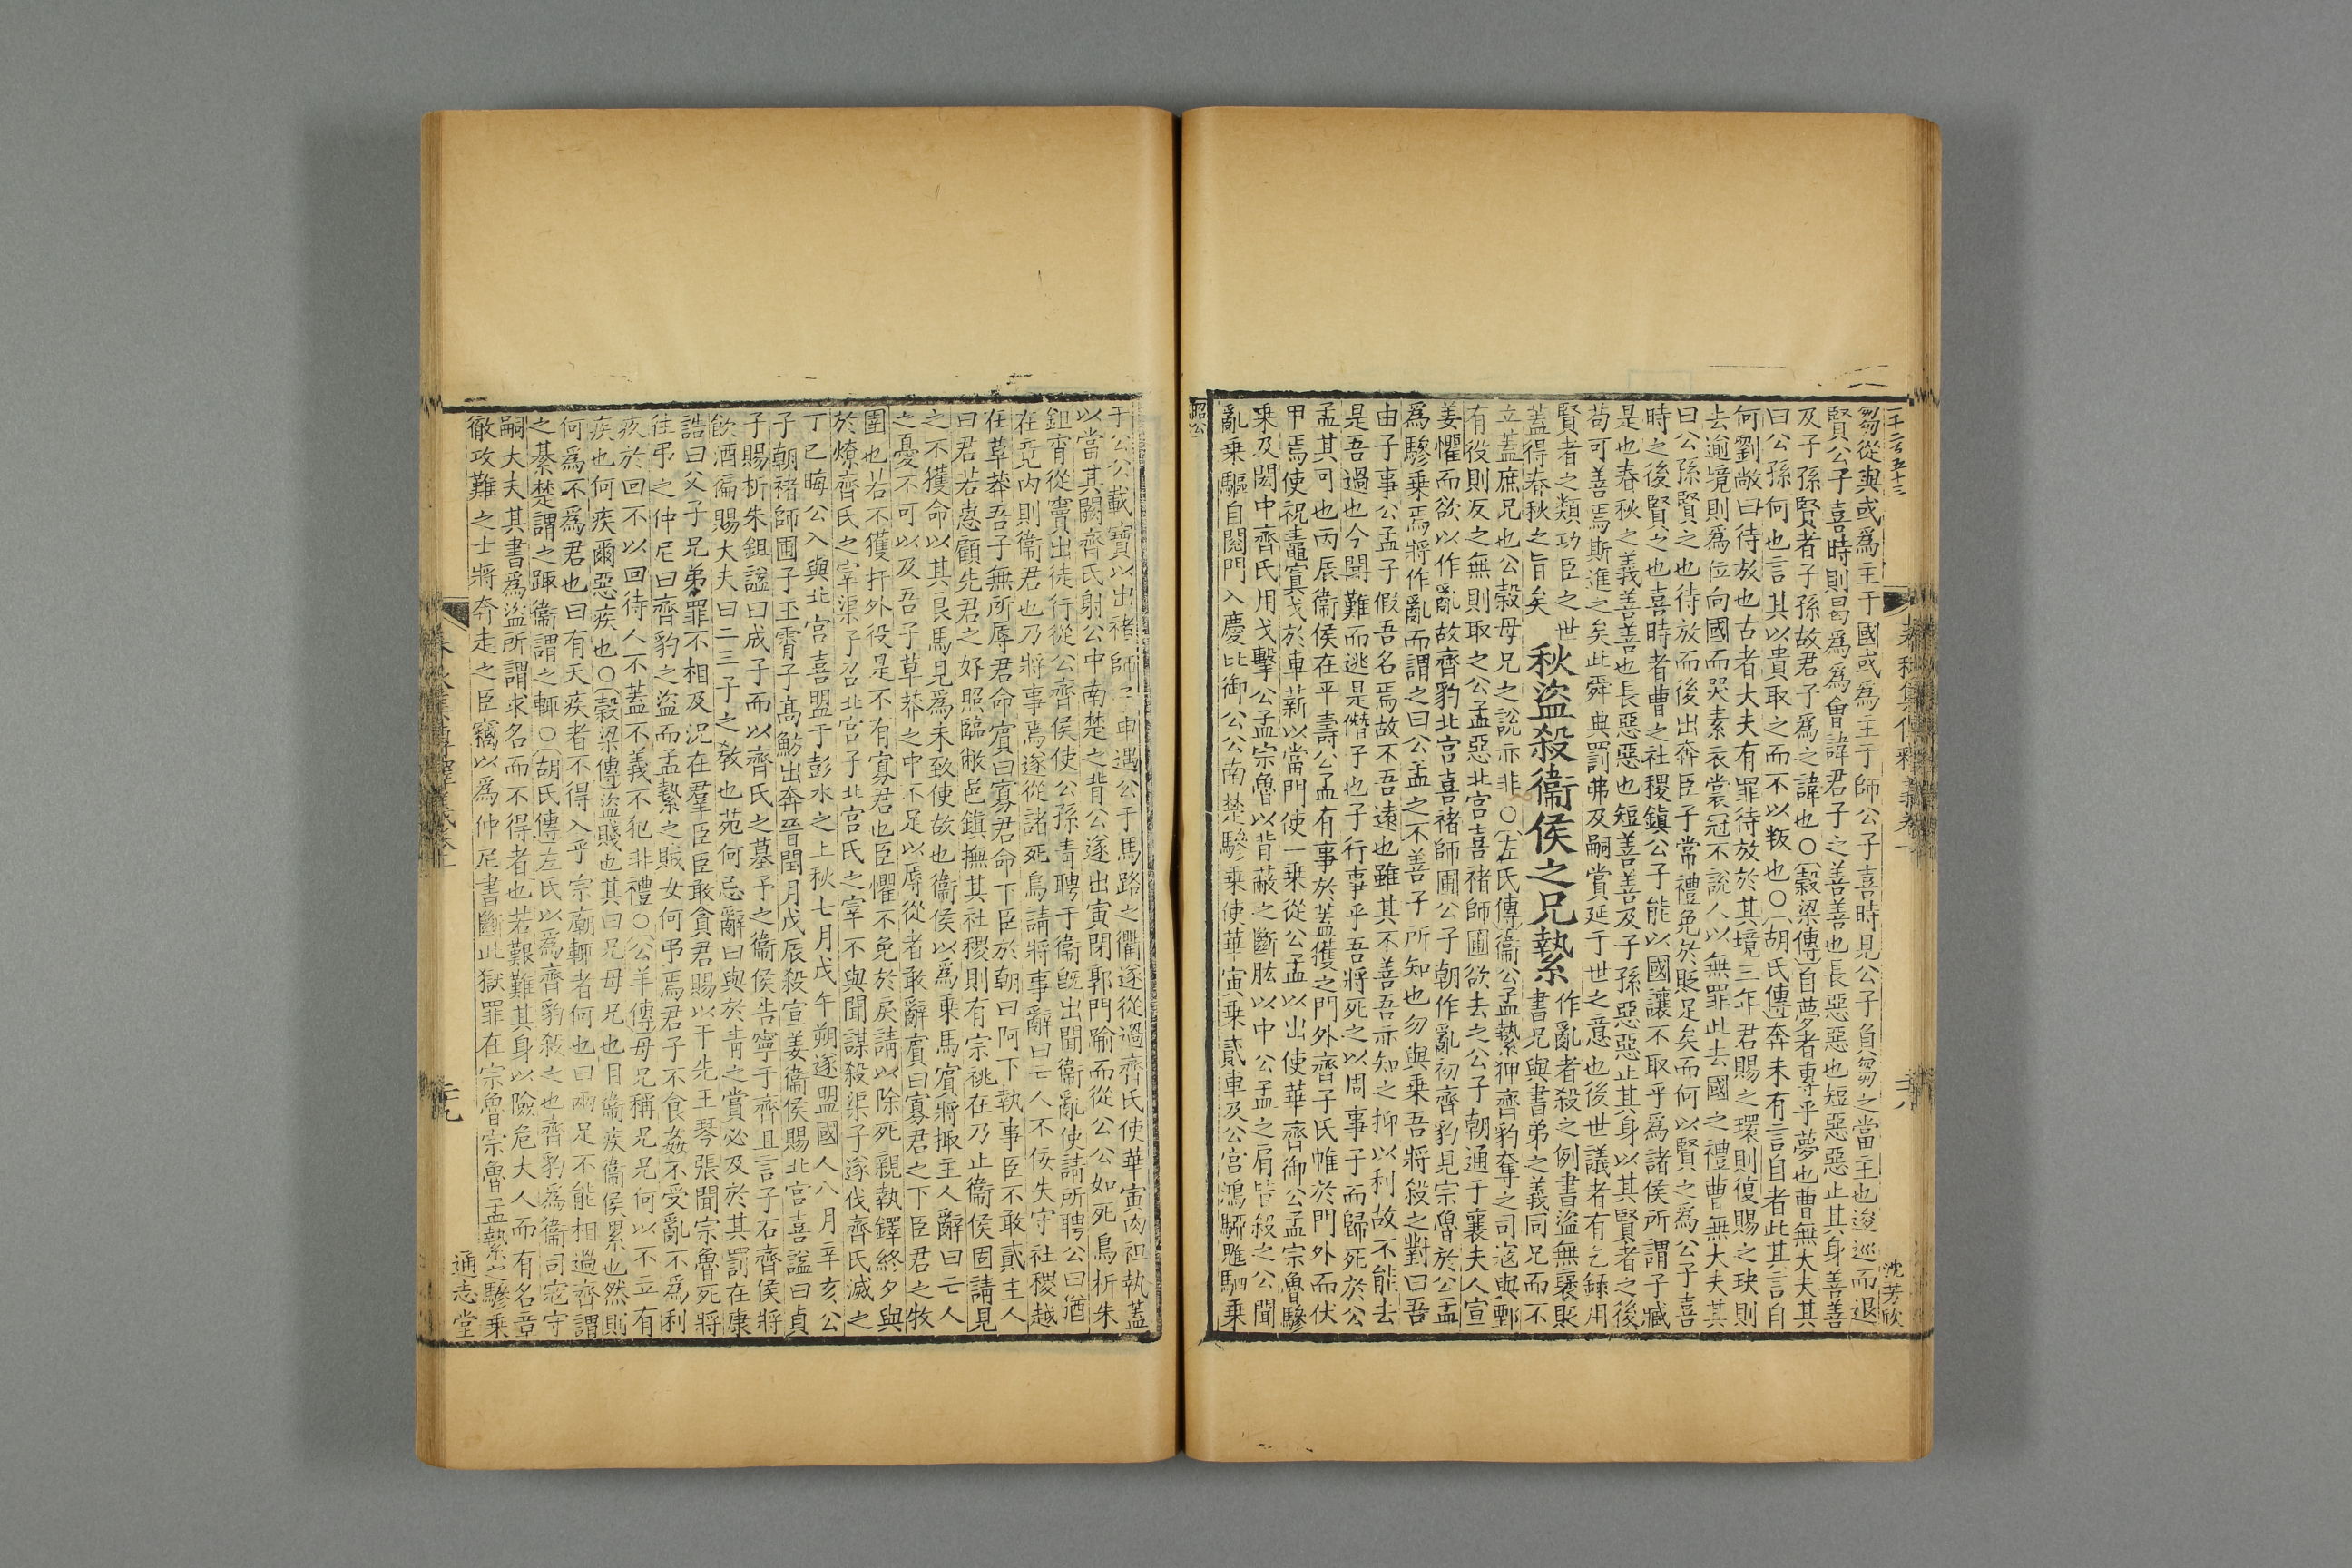 芻從與或為主于國或為主于師公子喜時見公子負芻之當主也逡巡而退
賢公子喜時則曷為為會諱君子之善善也長惡惡也短惡惡止其身善善
及子孫賢者子孫故君子為之諱也○穀梁傳自夢者專乎夢也曹無大夫其
曰公孫何也言其以貴取之而不以叛也○胡氏傳奔未有言自者此其言自
何劉敞曰待放也古者大夫有罪待放於其境三年君賜之環則復賜之玦則
去逾境則為位向國而哭素衣裳冠不說人以無罪此去國之禮曹無大夫其
曰公孫賢之也待放而後出奔臣子常禮免於貶足矣而何以賢之為公子喜
時之後賢之也喜時者曹之社稷鎮公子能以國讓不取乎為諸侯所謂子臧
是也春秋之義善善也長惡惡也短善善及子孫惡惡止其身以其賢者之後
苟可善焉斯進之矣此舜典罰弗及嗣賞延于世之意也後世議者有乞錄用
賢者之類功臣之世
蓋得春秋之旨矣
秋盜殺衞侯之兄縶
作亂者殺之例書盜無褒貶
書兄與書弟之義同兄而不
立蓋庶兄也公穀母兄之說亦非○左氏傳衞公孟縶狎齊豹奪之司寇與鄄
有役則反之無則取之公孟惡北宮喜褚師圃欲去之公子朝通于襄夫人宣
姜懼而欲以作亂故齊豹北宮喜褚師圃公子朝作亂初齊豹見宗魯於公孟
為驂乘焉將作亂而謂之曰公孟之不善子所知也勿與乘吾將殺之對曰吾
由子事公孟子假吾名焉故不吾遠也雖其不善吾亦知之抑以利故不能去
是吾過也今聞難而逃是僭子也子行事乎吾將死之以周事子而歸死於公
孟其可也丙辰衞侯在平壽公孟有事於蓋獲之門外齊子氏帷於門外而伏
甲焉使祝鼃寘戈於車薪以當門使一乘從公孟以出使華齊御公孟宗魯驂
乘及閎中齊氏用戈擊公孟宗魯以背蔽之斷肱以中公孟之肩皆殺之公聞
亂乘驅自閱門入慶比御公公南楚驂乘使華寅乘貳車及公宮鴻駵魋駟乘
昭公
于公公載寶以出褚師子申遇公于馬路之衢遂從過齊氏使華寅肉袒執蓋
以當其闕齊氏射公中南楚之背公遂出寅閉郭門踰而從公公如死鳥析朱
鉏宵從竇出徒行從公齊侯使公孫青聘于衞旣出聞衞亂使請所聘公曰猶
在竟內則衞君也乃將事焉遂從諸死鳥請將事辭曰亡人不佞失守社稷越
在草莽吾子無所辱君命賓曰寡君命下臣於朝曰阿下執事臣不敢貳主人
曰君若惠顧先君之好照臨敝邑鎮撫其社稷則有宗祧在乃止衞侯固請見
之不獲命以其良馬見為未致使故也衞侯以為乘馬賓將掫主人辭曰亡人
之憂不可以及吾子草莽之中不足以辱從者敢辭賓曰寡君之下臣君之牧
圉也若不獲扞外役是不有寡君也臣懼不免於戾請以除死親執鐸終夕與
於燎齊氏之宰渠子召北宮子北宮氏之宰不與聞謀殺渠子遂伐齊氏滅之
丁巳晦公入與北宮喜盟于彭水之上秋七月戊午朔遂盟國人八月辛亥公
子朝褚師圃子玉霄子高魴出奔晉閏月戊辰殺宣姜衞侯賜北宮喜諡曰貞
子賜析朱鉏諡曰成子而以齊氏之墓予之衞侯告寧于齊且言子石齊侯將
飲酒徧賜大夫曰二三子之敎也苑何忌辭曰與於青之賞必及於其罰在康
誥曰父子兄弟罪不相及況在羣臣臣敢貪君賜以干先王琴張聞宗魯死將
往弔之仲尼曰齊豹之盜而孟縶之賊女何弔焉君子不食姦不受亂不為利
疚於回不以回待人不蓋不義不犯非禮○公羊傳母兄稱兄兄何以不立有
疾也何疾爾惡疾也○穀梁傳盜賤也其曰兄母兄也目衞侯衞侯累也然則
何為不為君也曰有天疾者不得入乎宗廟輒者何也曰兩足不能相過齊謂
之綦楚謂之踙衞謂之輒○胡氏傳左氏以為齊豹殺之也齊豹為衞司寇守
嗣大夫其書為盜所謂求名而不得者也若艱難其身以險危大人而有名章
徹攻難之士將奔走之臣竊以為仲尼書斷此獄罪在宗魯宗魯孟縶之驂乘
通志堂